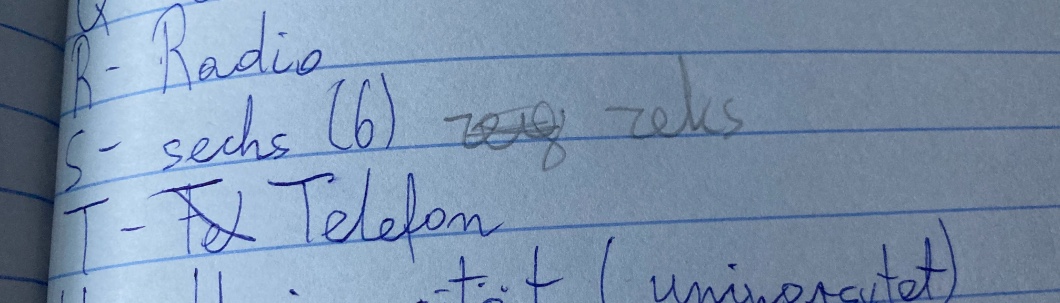 R - Radio
S - sechs (6) zeks
T - Telefon
(uniwersytet)